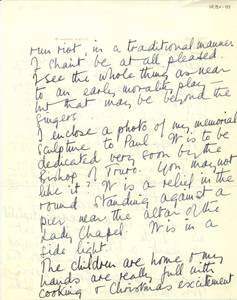 run riot, in a traditional manner
I shan't be at all pleased.
I see the whole thing as near
to an early morality play –
but that may be beyond the
singers
I enclose a photo of my memorial
sculpture to Paul. It is to be
dedicated very soon by the
Bishop of Truro. You may not
like it? It is a relief in the
round standing against a
pier near the altar of the
Lady Chapel. It is in a
side light.
The children are home & my
hands are really full with
cooking & Christmas excitement